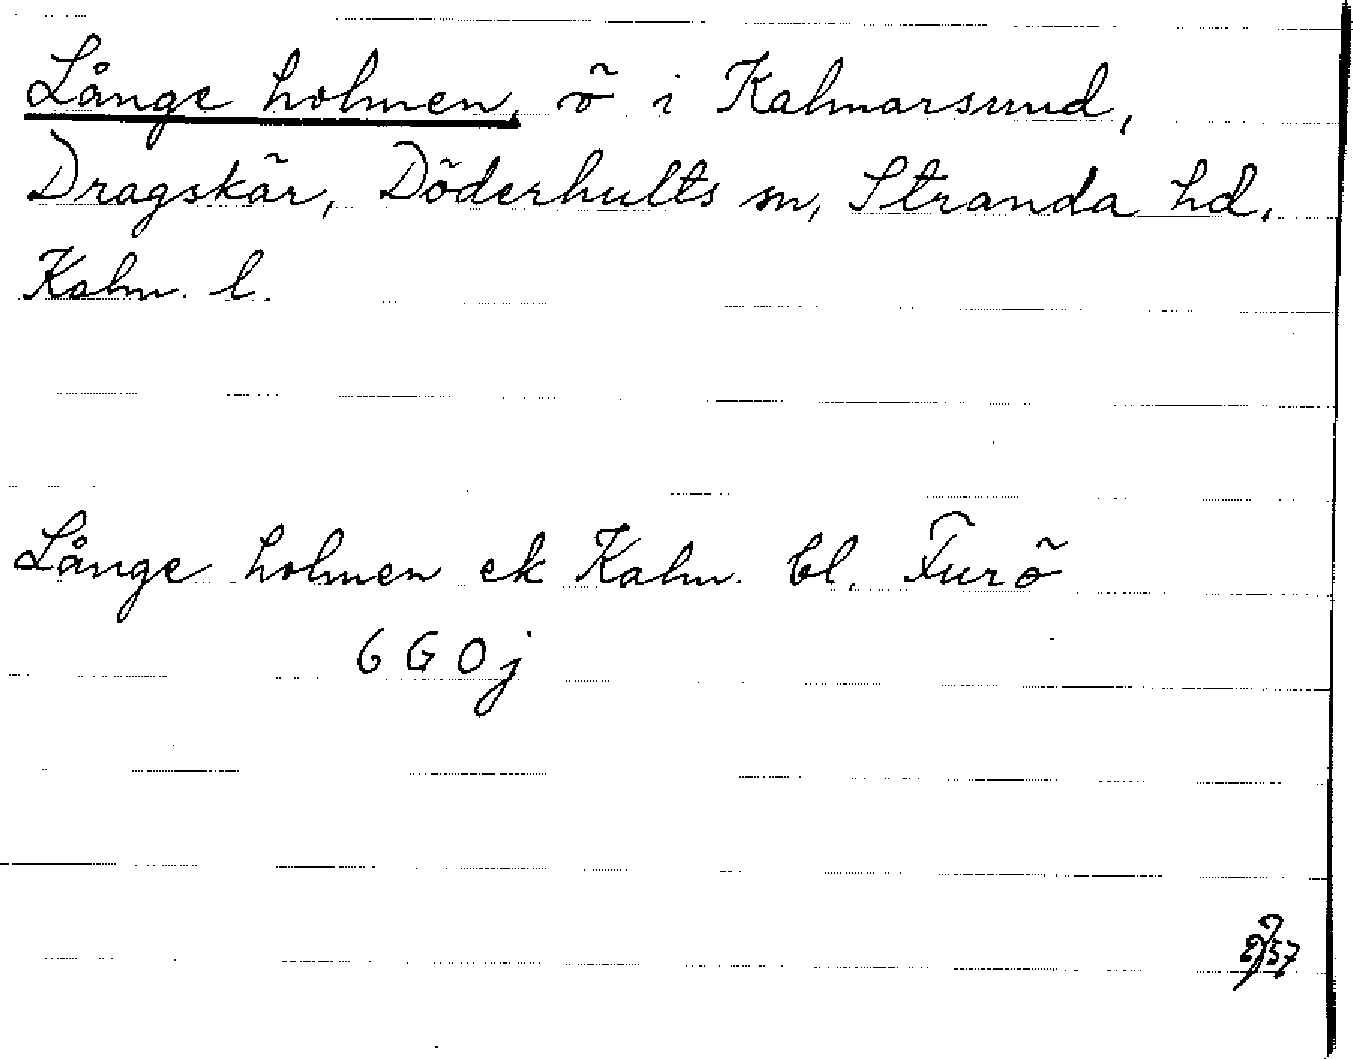 Långe holmen, ö i Kalmarsund,
Dragskär, Döderhults sn, Stranda hd,
Kalm. l.
Långe holmen ek Kalm. bl. Furö
6 G 0 j